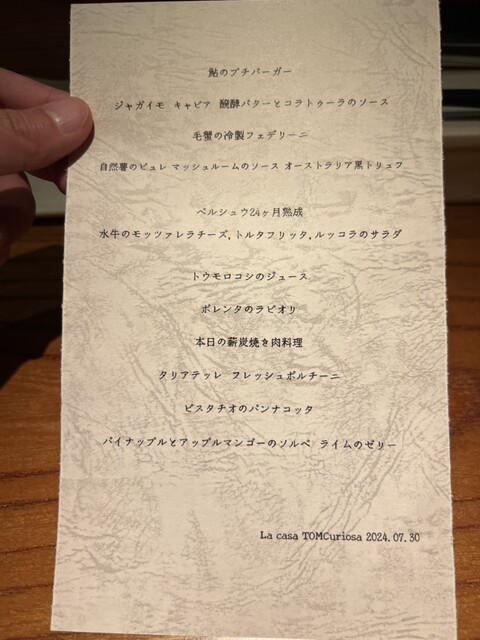 鮎のプチバーガー
ジャガイモ キャビア 醗酵バターとコラトゥーラのソース
毛蟹の冷製フェデリーニ
自然薯のピュレ マッシュルームのソース オーストラリア黒トリュフ
ペルシュウ24ヶ月熟成
水牛のモッツァレラチーズ,トルタフリッタ,ルッコラのサラダ
トウモロコシのジュース
ポレンタのラビオリ
本日の薪炭焼き肉料理
タリアテッレ フレッシュポルチーニ
ピスタチオのパンナコッタ
パイナップルとアップルマンゴーのソルベ ライムのゼリー
La casa TOMCuriosa 2024.07.30